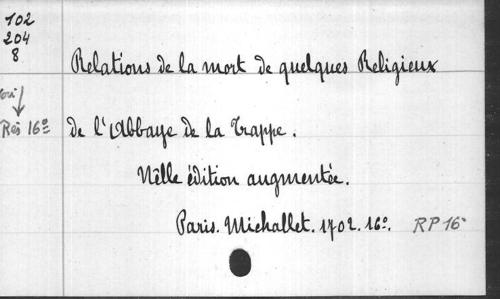 102
204
8
Relations de la mort de quelques Religieux
Rés 16º
de l'Abbaye de la Trappe.
Nelle édition augmentée.
Paris. Michallet. 1702. 16º. RP 16º